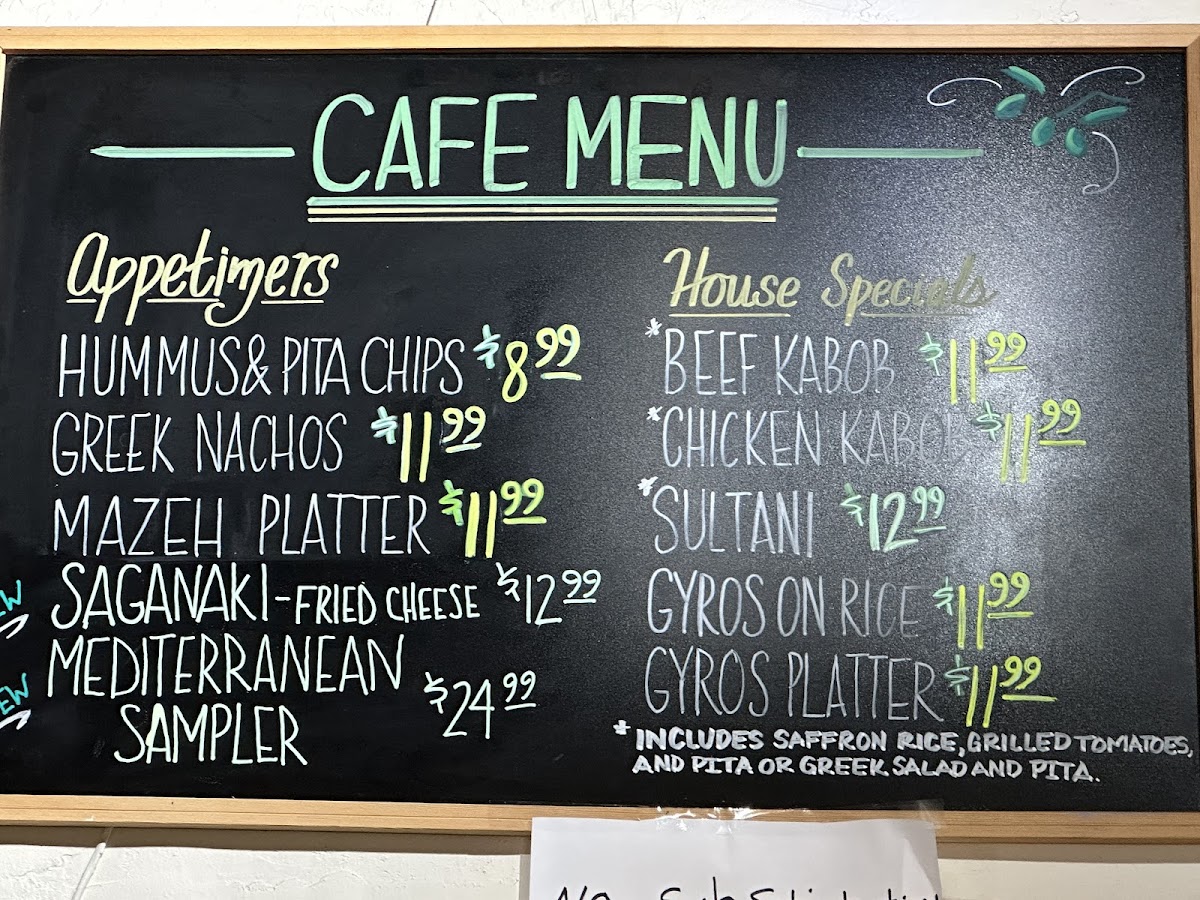 CAFE MENU
Appetizers
HUMMUS & PITA CHIPS $8.99
GREEK NACHOS $11.99
MAZEH PLATTER $11.99
SAGANAKI - FRIED CHEESE $12.99
MEDITERRANEAN
SAMPLER $24.99
House Specials
* BEEF KABOB $11.99
* CHICKEN KABOB $11.99
* SULTANI $12.99
GYROS ON RICE $11.99
GYROS PLATTER $11.99
* INCLUDES SAFFRON RICE, GRILLED TOMATOES,
AND PITA OR GREEK SALAD AND PITA.